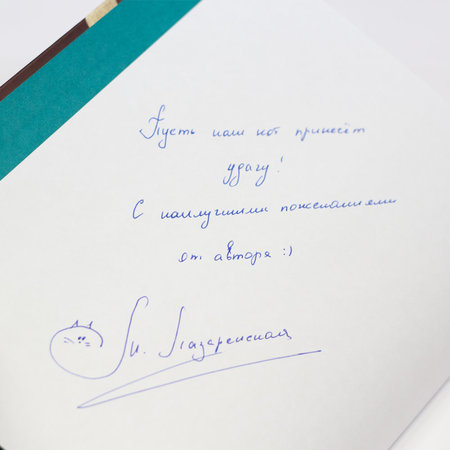 Пусть наш кот принесёт
удачу!
С наилучшими пожеланиями
от автора :)
Лазаренская